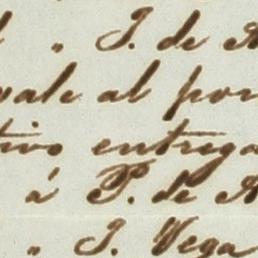 " J. de A
vale al por
tivo entrega
á P. de A
" J. Vega